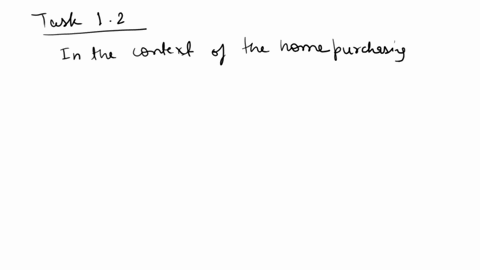 Task 1.2
In the context of the home purchasing